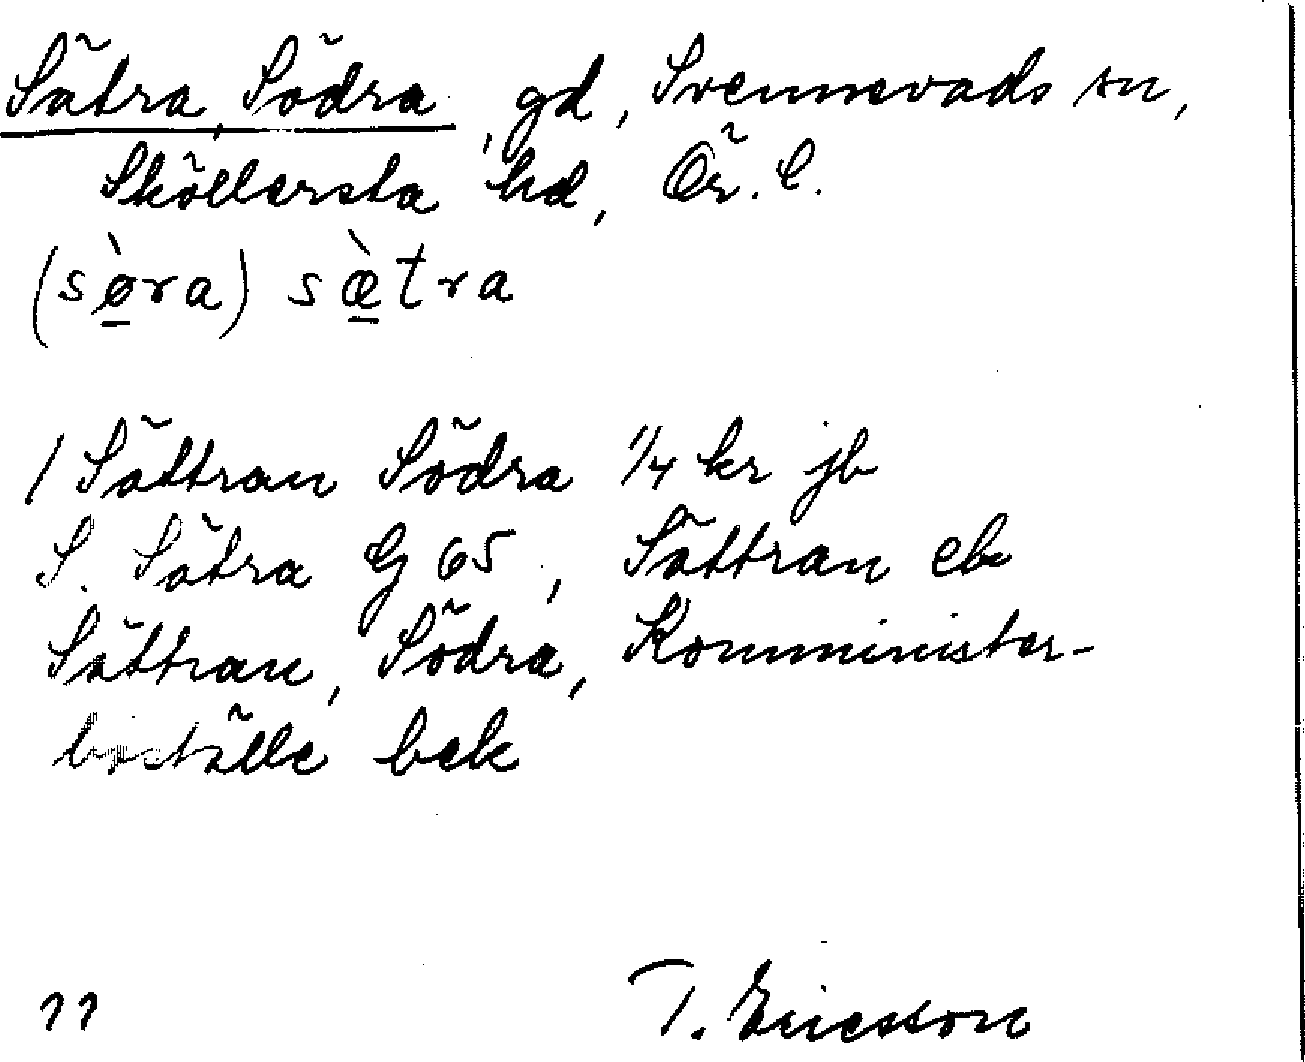 Sätra, Södra, gd, Svennevads sn,
Sköllersta hd, Ör. l.
(sø̀ra) sæ̀tra
1 Sättran Södra 1/4 kr jb
S. Sätra G 65, Sättran ek
Sättran, Södra, Komminister-
boställe bek
77 T. Ericsson